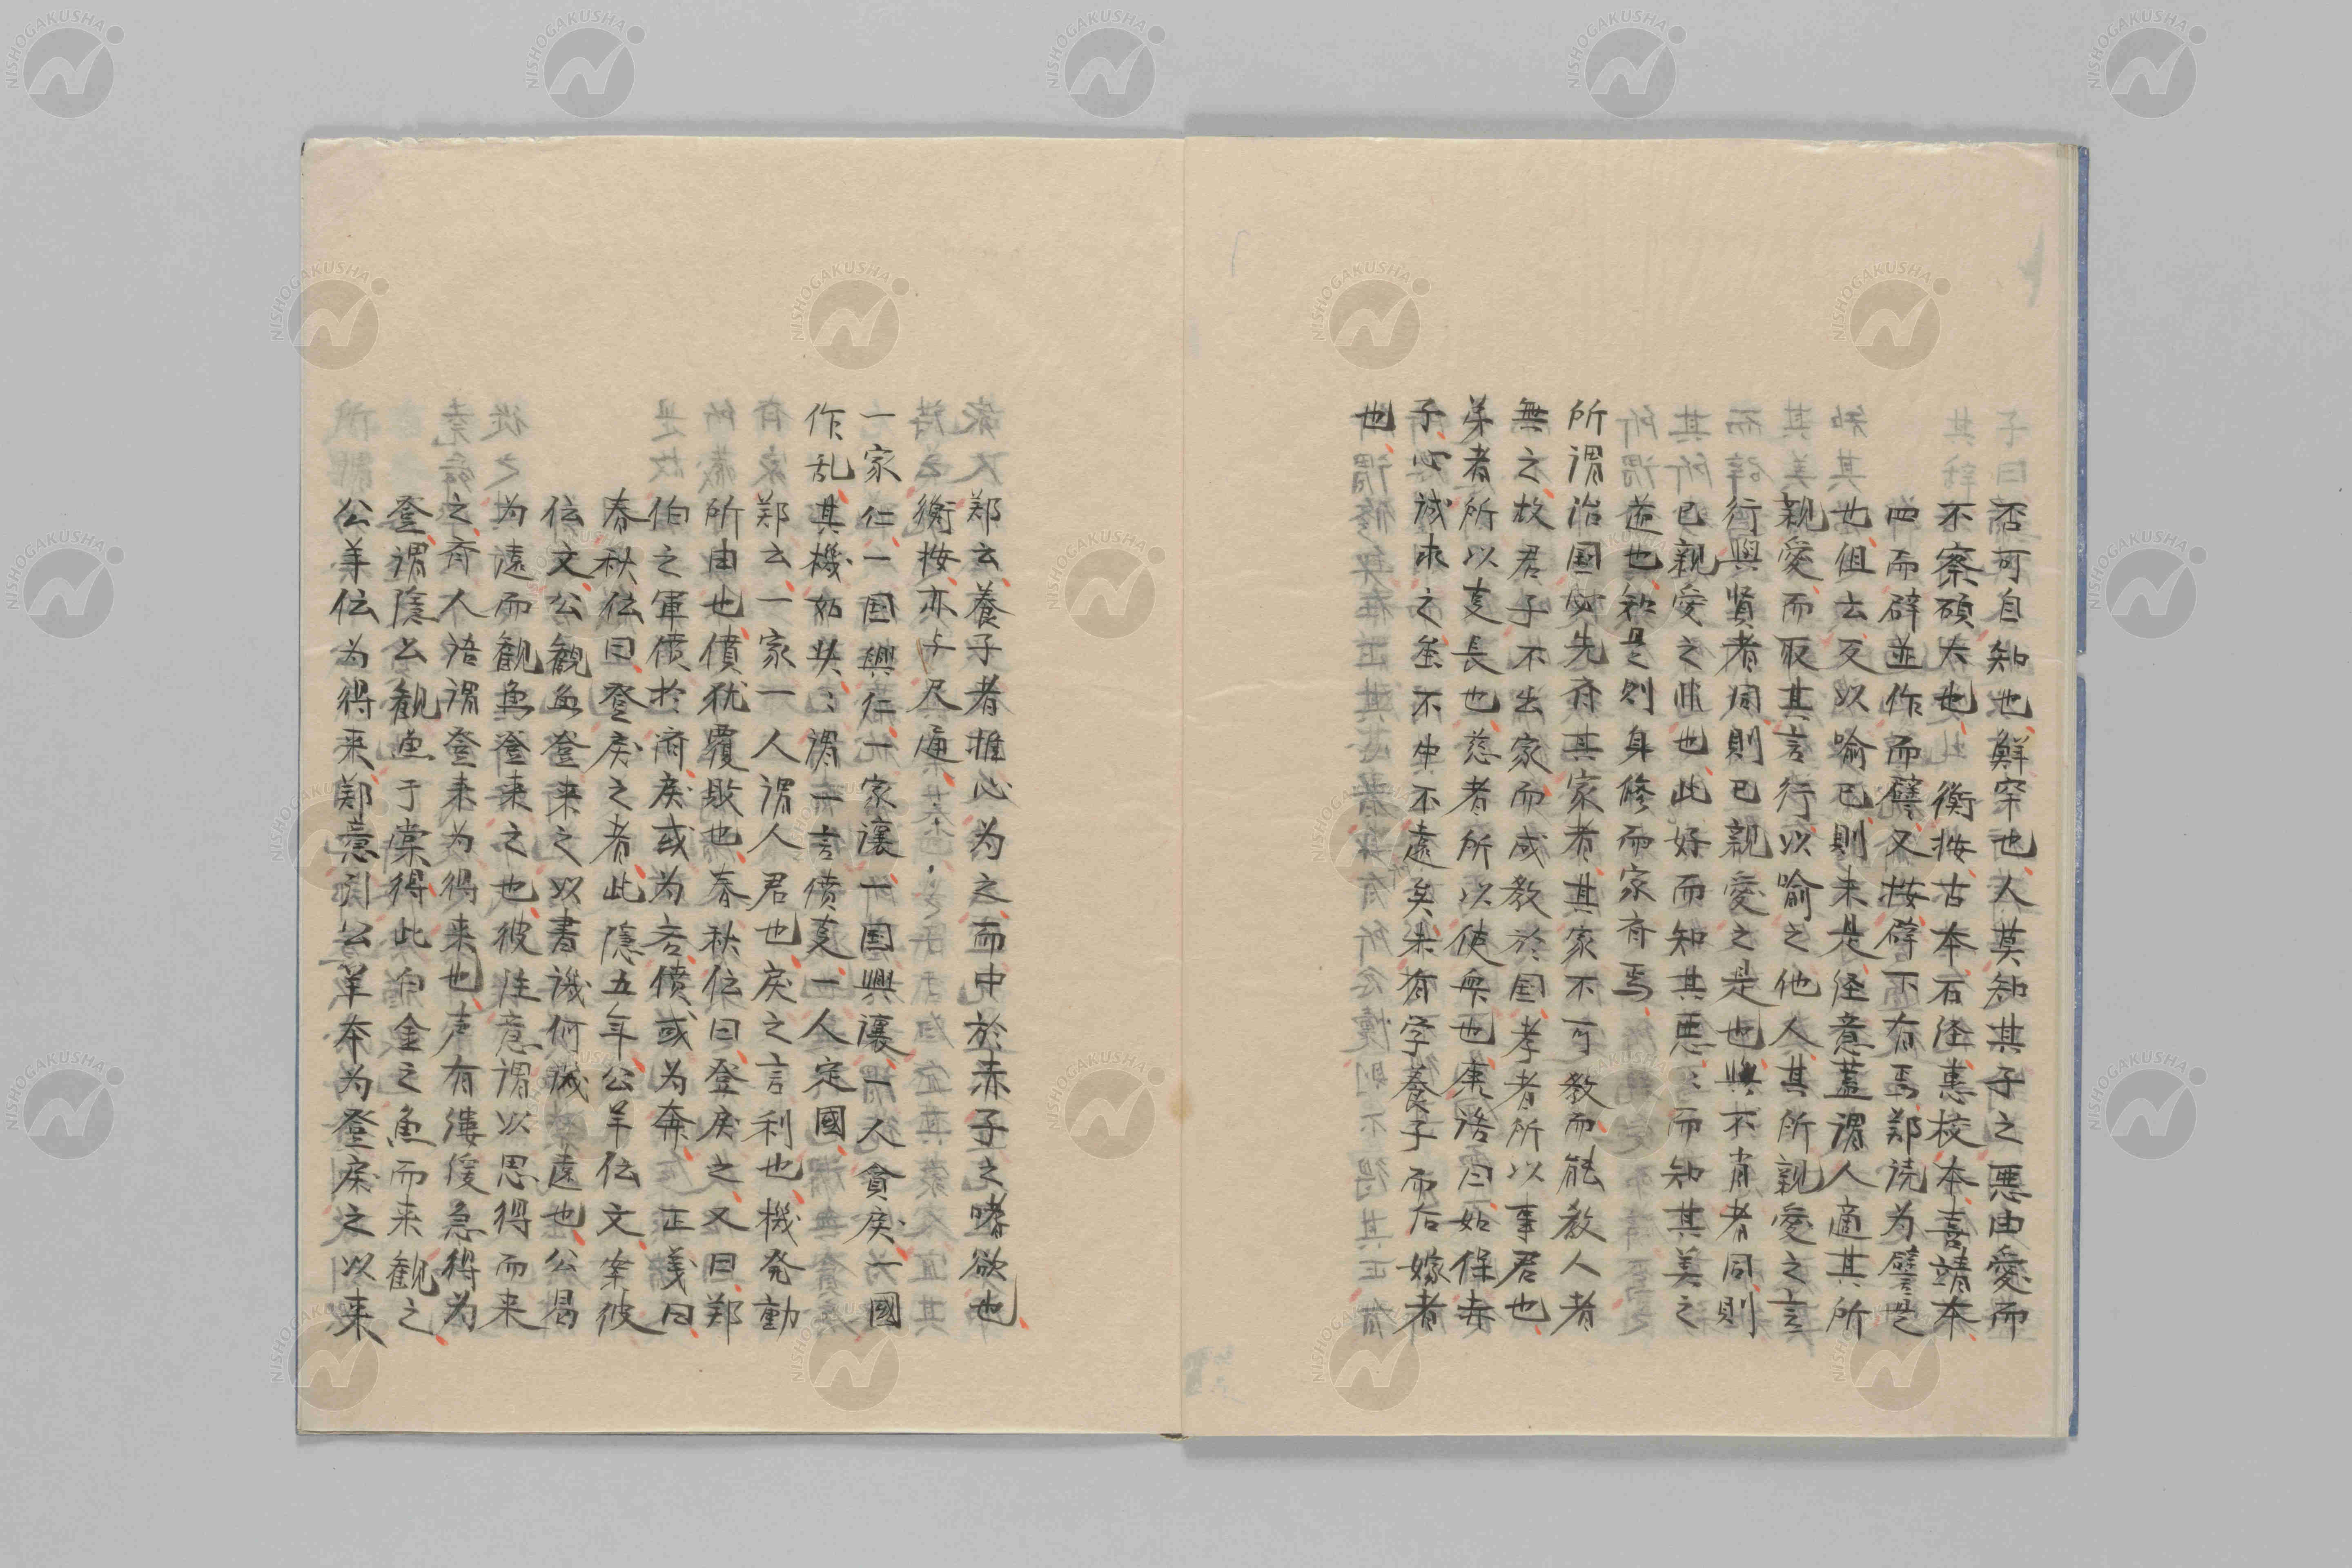 否可自知也鮮罕也人莫知其子之悪由愛而
不察碩大也 衡按古本石経恵校本喜靖本
四而辟並作而譬又按辟下有焉鄭読为譬是
也但云反以喻己則未是経意蓋謂人適其所
親愛而取其言行以喻之他人其所親愛之言
行與賢者同則已親愛之是也與不肖者同則
已親愛之非也此好而知其悪〻而知其美之
道也知是則身修而家斉焉
所謂治国必先斉其家者其家不可教而能教人者
無之故君子不出家而成教於国孝者所以事君也
弟者所以事長也慈者所以使衆也康誥曰如保赤
子心誠求之虽不中不遠矣未有学養子而后嫁者
也
鄭云養子者推心为之而中於赤子之嗜欲也
衡按亦与尺通
一家仁一国興仁一家讓一国興讓一人貪戾一國
作乱其機如此〻謂一言僨事一人定國
鄭云一家一人謂人君也戾之言利也機発動
所由也僨犹覆敗也春秋伝曰登戾之又曰鄭
伯之軍僨於済戾或为吝僨或为奔 正義曰
春秋伝曰登戾之者此隱五年公羊伝文案彼
伝文公観魚登来之以書譏何譏遠也公曷
为遠而観魚登来之也彼注意謂以思得而来
之斉人語謂登来为得来也声有淒俊急得为
登謂隱公観魚于棠得此百金之魚而来観之
公羊伝为得来鄭意引公羊本为登戾之以来
NISHOGAKUSHA